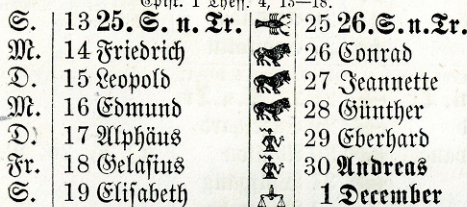 Epist. 1 Thess. 4, 13—18.
S. 13 25. S. n. Tr. 25 26. S. n. Tr.
M. 14 Friedrich 26 Conrad
D. 15 Leopold 27 Jeannette
M. 16 Edmund 28 Günther
D. 17 Alphäus 29 Eberhard
Fr. 18 Gelasius 30 Andreas
S. 19 Elisabeth 1 December